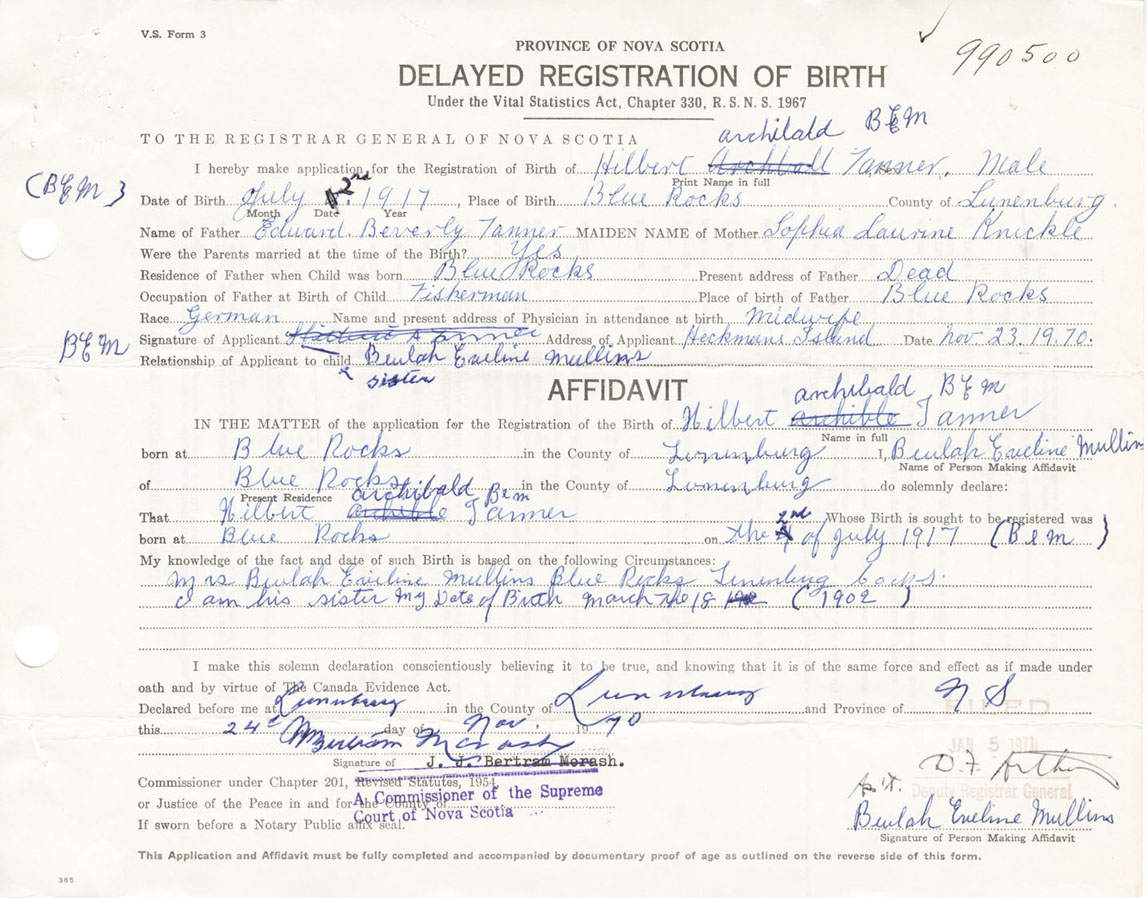 V.S. Form 3
990500
PROVINCE OF NOVA SCOTIA
DELAYED REGISTRATION OF BIRTH
Under the Vital Statistics Act, Chapter 330, R. S. N. S. 1967
archibald BEM
TO THE REGISTRAR GENERAL OF NOVA SCOTIA
I hereby make application for the Registration of Birth of Hilbert Archball Tanner, Male
Print Name in full Sex
(BEM) Date of Birth July 2nd 1917, Place of Birth Blue Rocks County of Lunenburg.
Month Date Year
Name of Father Edward Beverly Tanner MAIDEN NAME of Mother Sophia Laurine Knickle
Were the Parents married at the time of the Birth? Yes
Residence of Father when Child was born Blue Rocks Present address of Father Dead
Occupation of Father at Birth of Child Fisherman Place of birth of Father Blue Rocks
Race German Name and present address of Physician in attendance at birth Midwife
Signature of Applicant Address of Applicant Heckmans Island Date Nov. 23. 1970.
BEM Relationship of Applicant to child Beulah Eveline Mullins
sister
AFFIDAVIT
archibald BEM
IN THE MATTER of the application for the Registration of the Birth of Hilbert archible Tanner
Name in full
born at Blue Rocks in the County of Lunenburg I, Beulah Eveline Mullins
Name of Person Making Affidavit
of Blue Rocks in the County of Lunenburg do solemnly declare:
Present Residence archibald Bem
That Hilbert archible Tanner Whose Birth is sought to be registered was
born at Blue Rocks on the 2nd of July 1917 (BEM)
My knowledge of the fact and date of such Birth is based on the following Circumstances:
Mrs Beulah Eveline Mullins Blue Rocks Lunenburg Co N.S.
I am his sister My Date of Birth March the 18 (1902)
I make this solemn declaration conscientiously believing it to be true, and knowing that it is of the same force and effect as if made under
oath and by virtue of The Canada Evidence Act.
Declared before me at Lunenburg in the County of Lunenburg and Province of N S
this 24th day of Nov. 1970
FILED
JAN 5 1971
Bertram Morash
Signature of J. J. Bertram Morash.
D. F. Arthur
Deputy Registrar General
Commissioner under Chapter 201, Revised Statutes, 1954,
or Justice of the Peace in and for the County of
A Commissioner of the Supreme
Court of Nova Scotia
If sworn before a Notary Public affix seal.
Beulah Eveline Mullins
Signature of Person Making Affidavit
This Application and Affidavit must be fully completed and accompanied by documentary proof of age as outlined on the reverse side of this form.
385